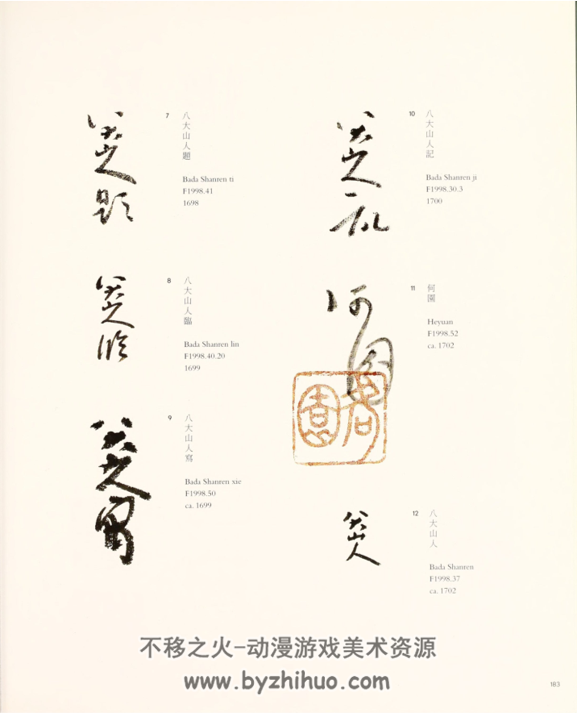 7
八大山人題
Bada Shanren ti
F1998.41
1698
8
八大山人臨
Bada Shanren lin
F1998.40.20
1699
9
八大山人寫
Bada Shanren xie
F1998.50
ca. 1699
10
八大山人記
Bada Shanren ji
F1998.30.3
1700
11
何園
Heyuan
F1998.52
ca. 1702
12
八大山人
Bada Shanren
F1998.37
ca. 1702
八大山人題
八大山人臨
八大山人寫
八大山人記
何園
八大山人
不移之火-动漫游戏美术资源
www.byzhihuo.com
183